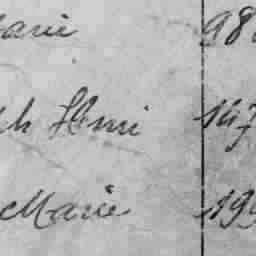 arie 98
ph Henri 147
Marie 19